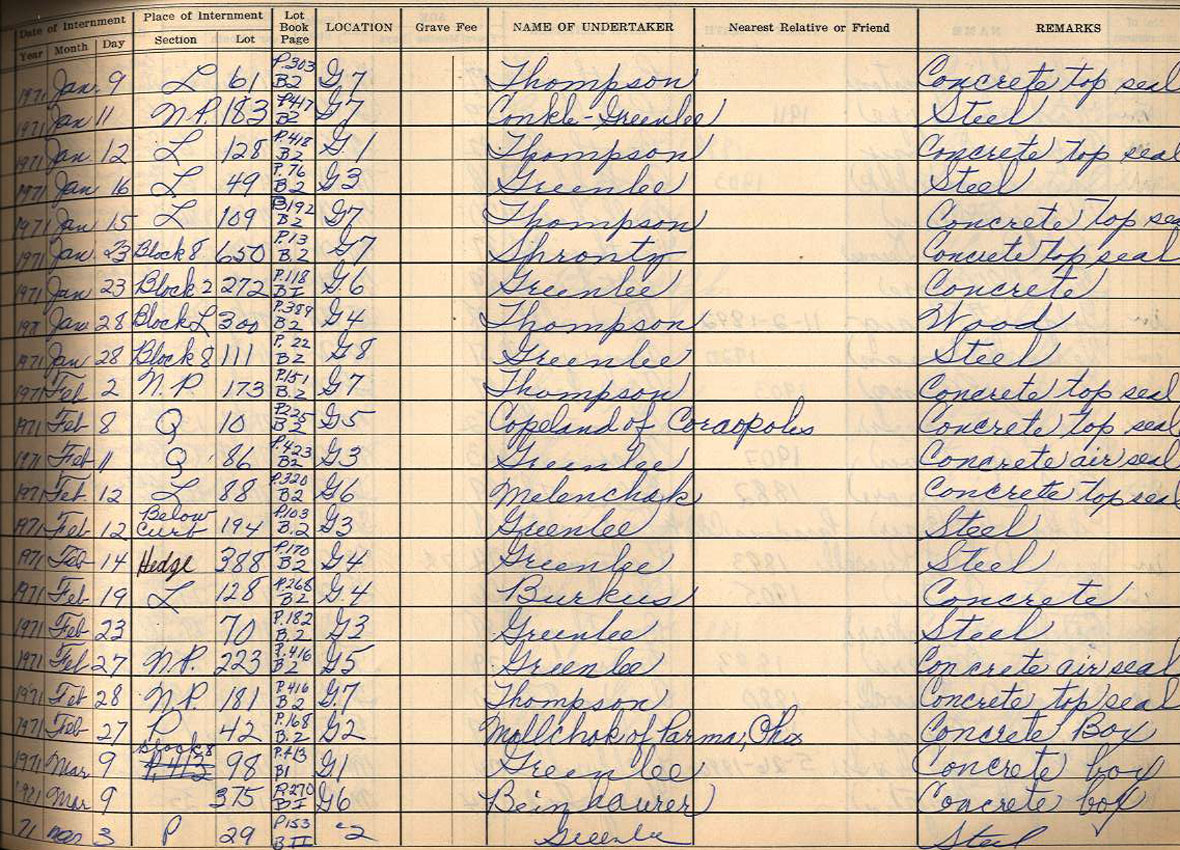 Date of Internment Place of Internment Lot Book Page LOCATION Grave Fee NAME OF UNDERTAKER Nearest Relative or Friend REMARKS
Year Month Day Section Lot
1971 Jan. 9 L 61 P.303 B2 G7 Thompson Concrete top seal
1971 Jan 11 N.P. 183 P417 B2 G7 Conkle-Greenlee Steel
1971 Jan. 12 L 128 P.418 B2 G.1 Thompson Concrete top seal
1971 Jan 16 L 49 P.76 B.2 G3 Greenlee Steel
1971 Jan 15 L 109 B192 B2 G7 Thompson Concrete top sea
1971 Jan. 23 Block 8 650 P.13 B.2 G7 Concrete top seal
1971 Jan 23 Block 2 272 P.118 BI G6 Greenlee Concrete
1971 Jan 28 Block L 300 P.389 B2 G4 Thompson Wood
1971 Jan 28 Block 8 111 P. 22 B2 G8 Greenlee Steel
1971 Feb 2 N.P 173 P.151 B.2 G7 Thompson Concrete top seal
1971 Feb 8 Q 10 P.225 B2 G5 Copeland of Coraopoles Concrete top seal
1971 Feb 11 Q 86 P.423 B2 G3 Greenlee Concrete air seal
1971 Feb 12 L 88 P.320 B2 G6 Melenchak Concrete top seal
1971 Feb 12 Below Curb 194 P.103 B.2 G3 Greenlee Steel
1971 Feb 14 Hedge 388 P.170 B2 G4 Greenlee Steel
1971 Feb 19 L 128 P.268 B2 G4 Burkus Concrete
1971 Feb 23 70 P.182 B.2 G3 Greenlee Steel
1971 Feb 27 N.P. 223 P.416 B2 G5 Greenlee Concrete air seal
1971 Feb 28 N.P. 181 P.416 B2 G.7 Thompson Concrete top seal
1971 Feb 27 P 42 P.168 B.2 G2 Mollchok of Parma, Ohio Concrete Box
1971 Mar 9 Block 8 98 P.413 B1 G1 Greenlee Concrete box
1971 Mar 9 375 P.270 BI G6 Beinhaurer Concrete box
71 mar 3 P 29 P153 BII 2 Greenlee Steel